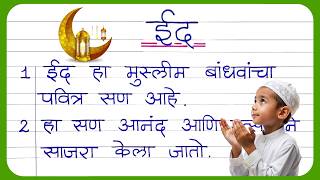 ईद
1 ईद हा मुस्लीम बांधवांचा
पवित्र सण आहे.
2 हा सण आनंद आणि ने
साजरा केला जातो.